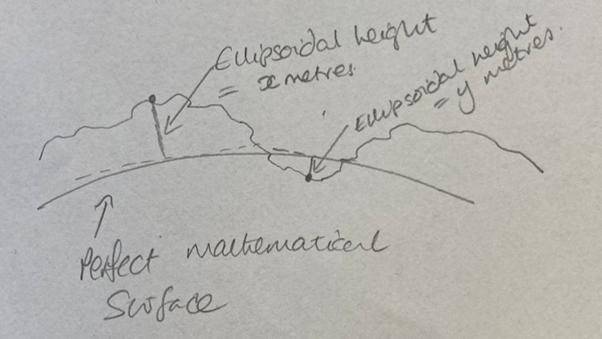 Ellipsoidal height
= x metres.
Ellipsoidal height
= y metres.
Perfect mathematical
Surface